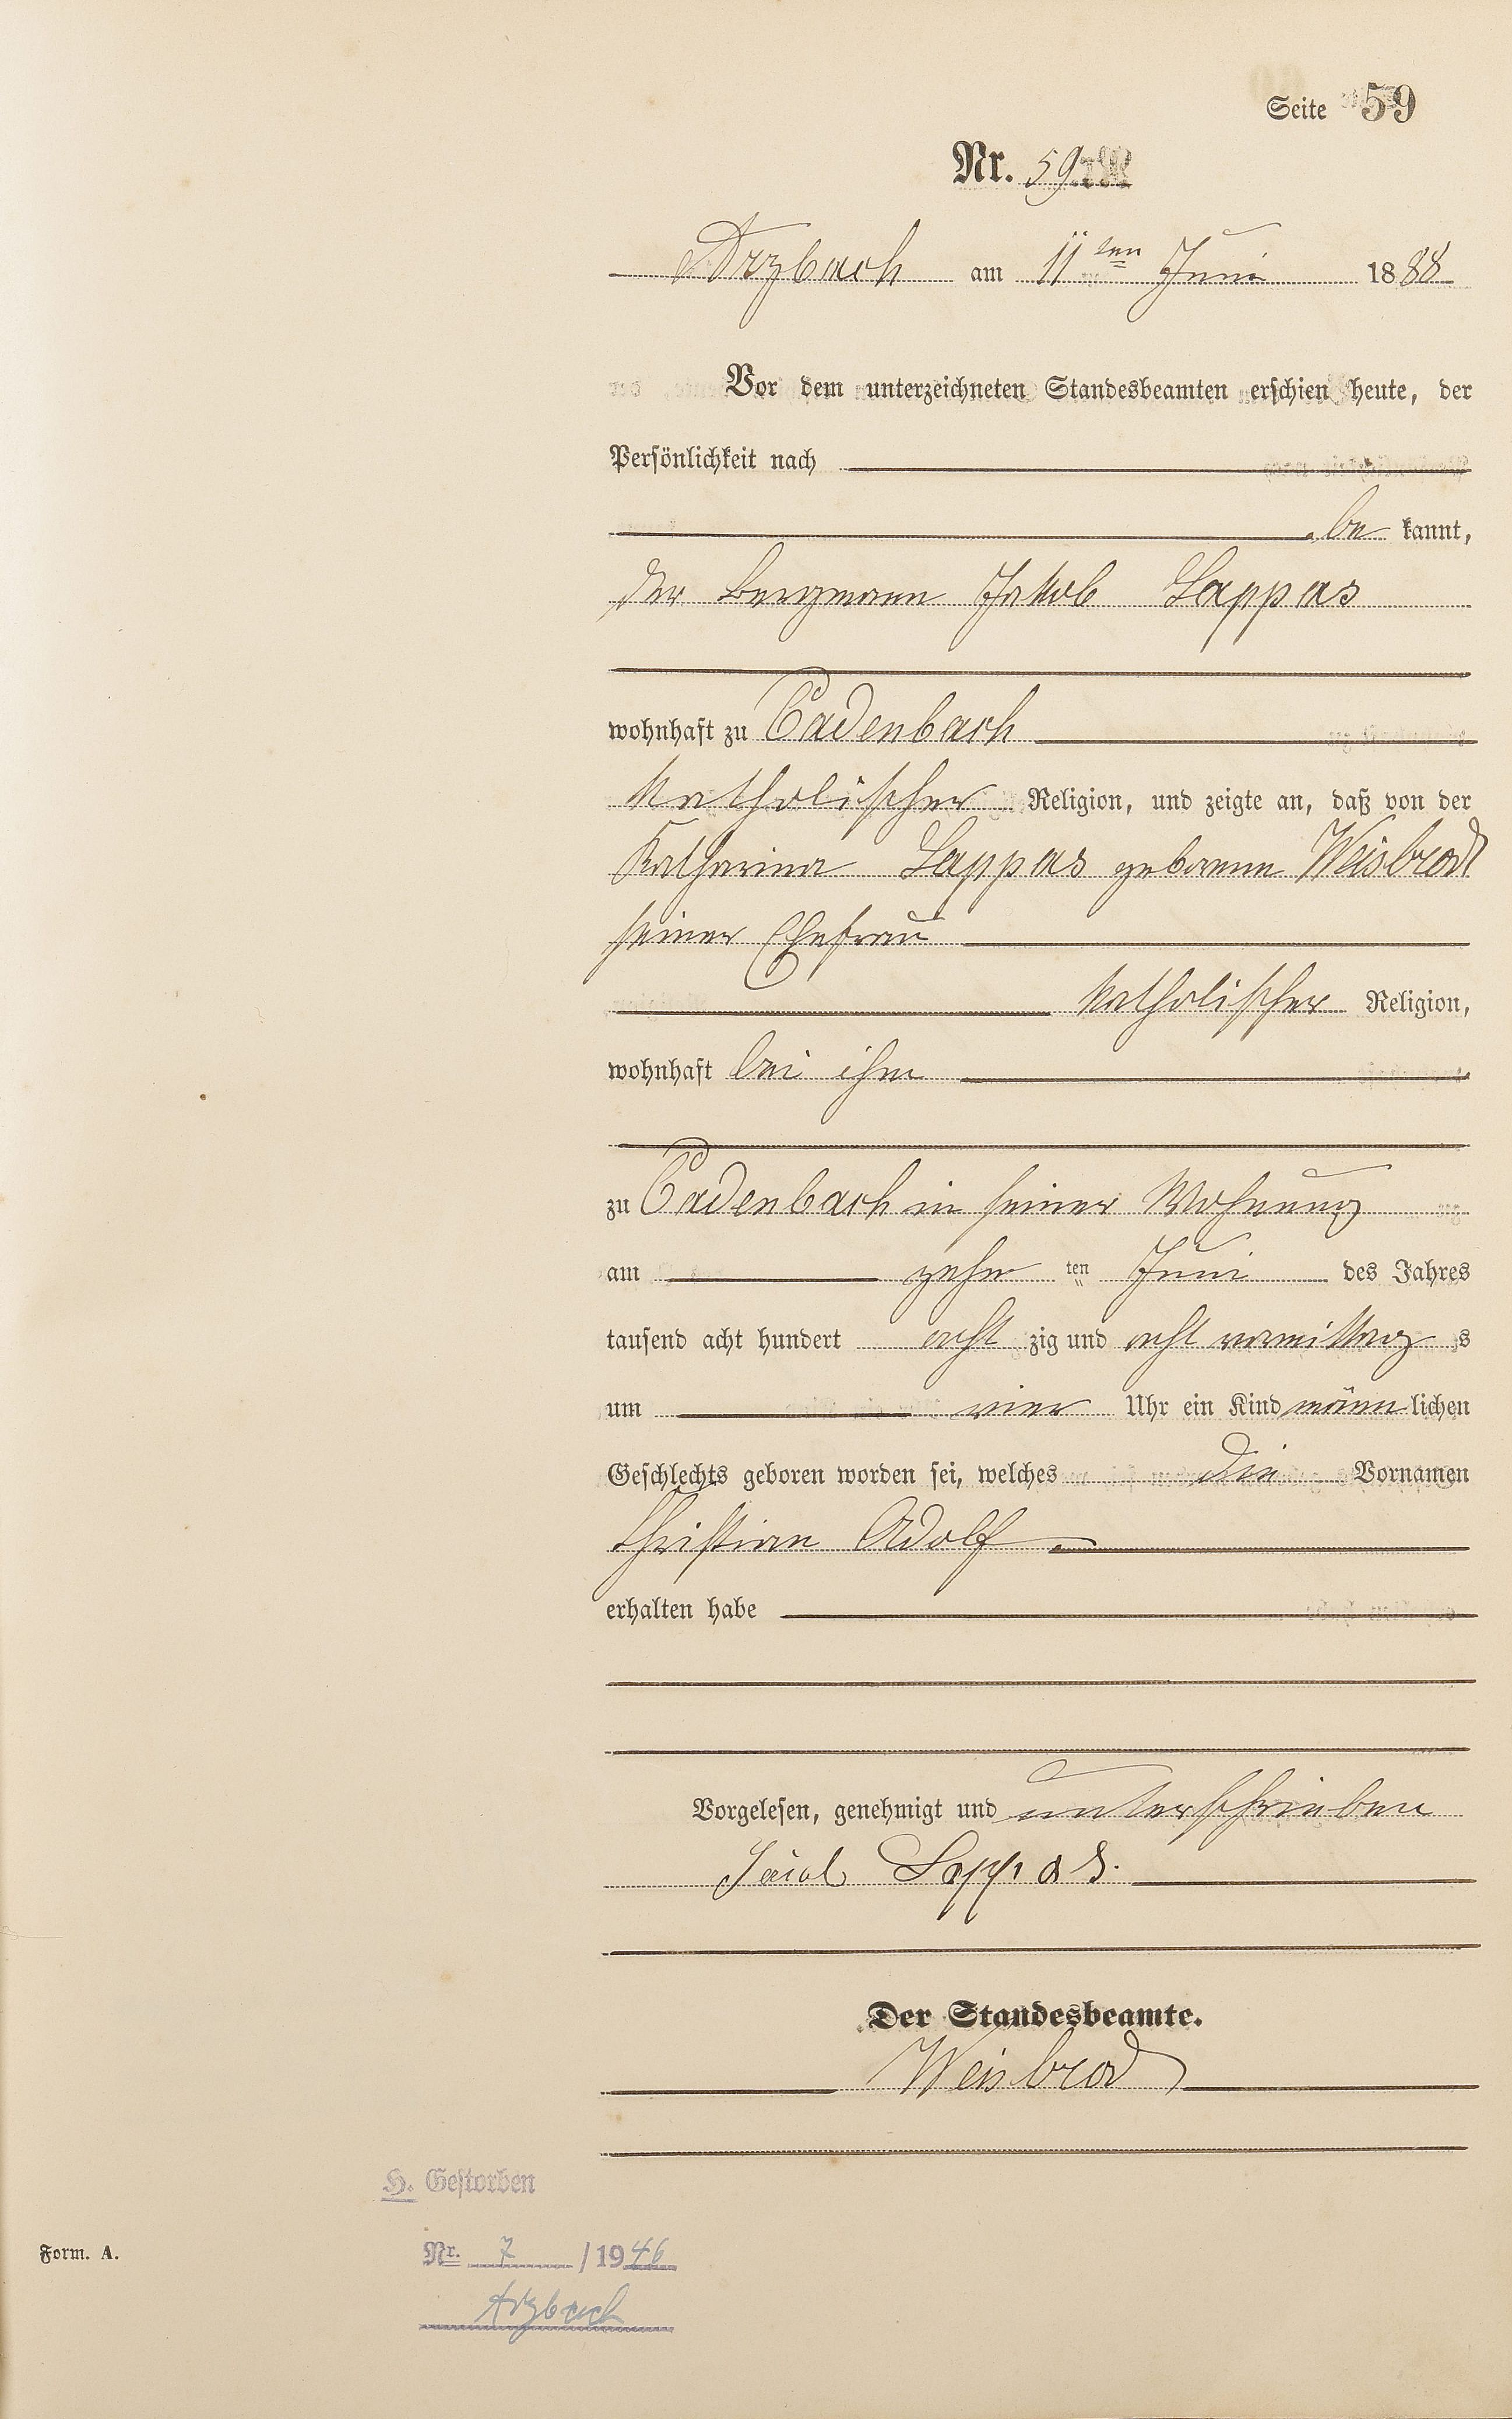 Seite 59
Nr. 59
Arzbach am 11ten Juni 1888
Vor dem unterzeichneten Standesbeamten erschien heute, der
Persönlichkeit nach
be kannt,
der Bergmann Jakob Lappas
wohnhaft zu Cadenbach
katholischer Religion, und zeigte an, daß von der
Katharina Lappas geborenen Weisbrod
seiner Ehefrau
katholischer Religion,
wohnhaft bei ihm
zu Cadenbach in seiner Wohnung
am zehn ten Juni des Jahres
tausend acht hundert acht zig und acht vormittag s
um vier Uhr ein Kind männ lichen
Geschlechts geboren worden sei, welches die Vornamen
Christian Adolf
erhalten habe
Vorgelesen, genehmigt und unterschrieben
Jacob Lappas.
Der Standesbeamte.
Weisbrod
H. Gestorben
Form. A.
Nr. 7 / 1946
Arzbach